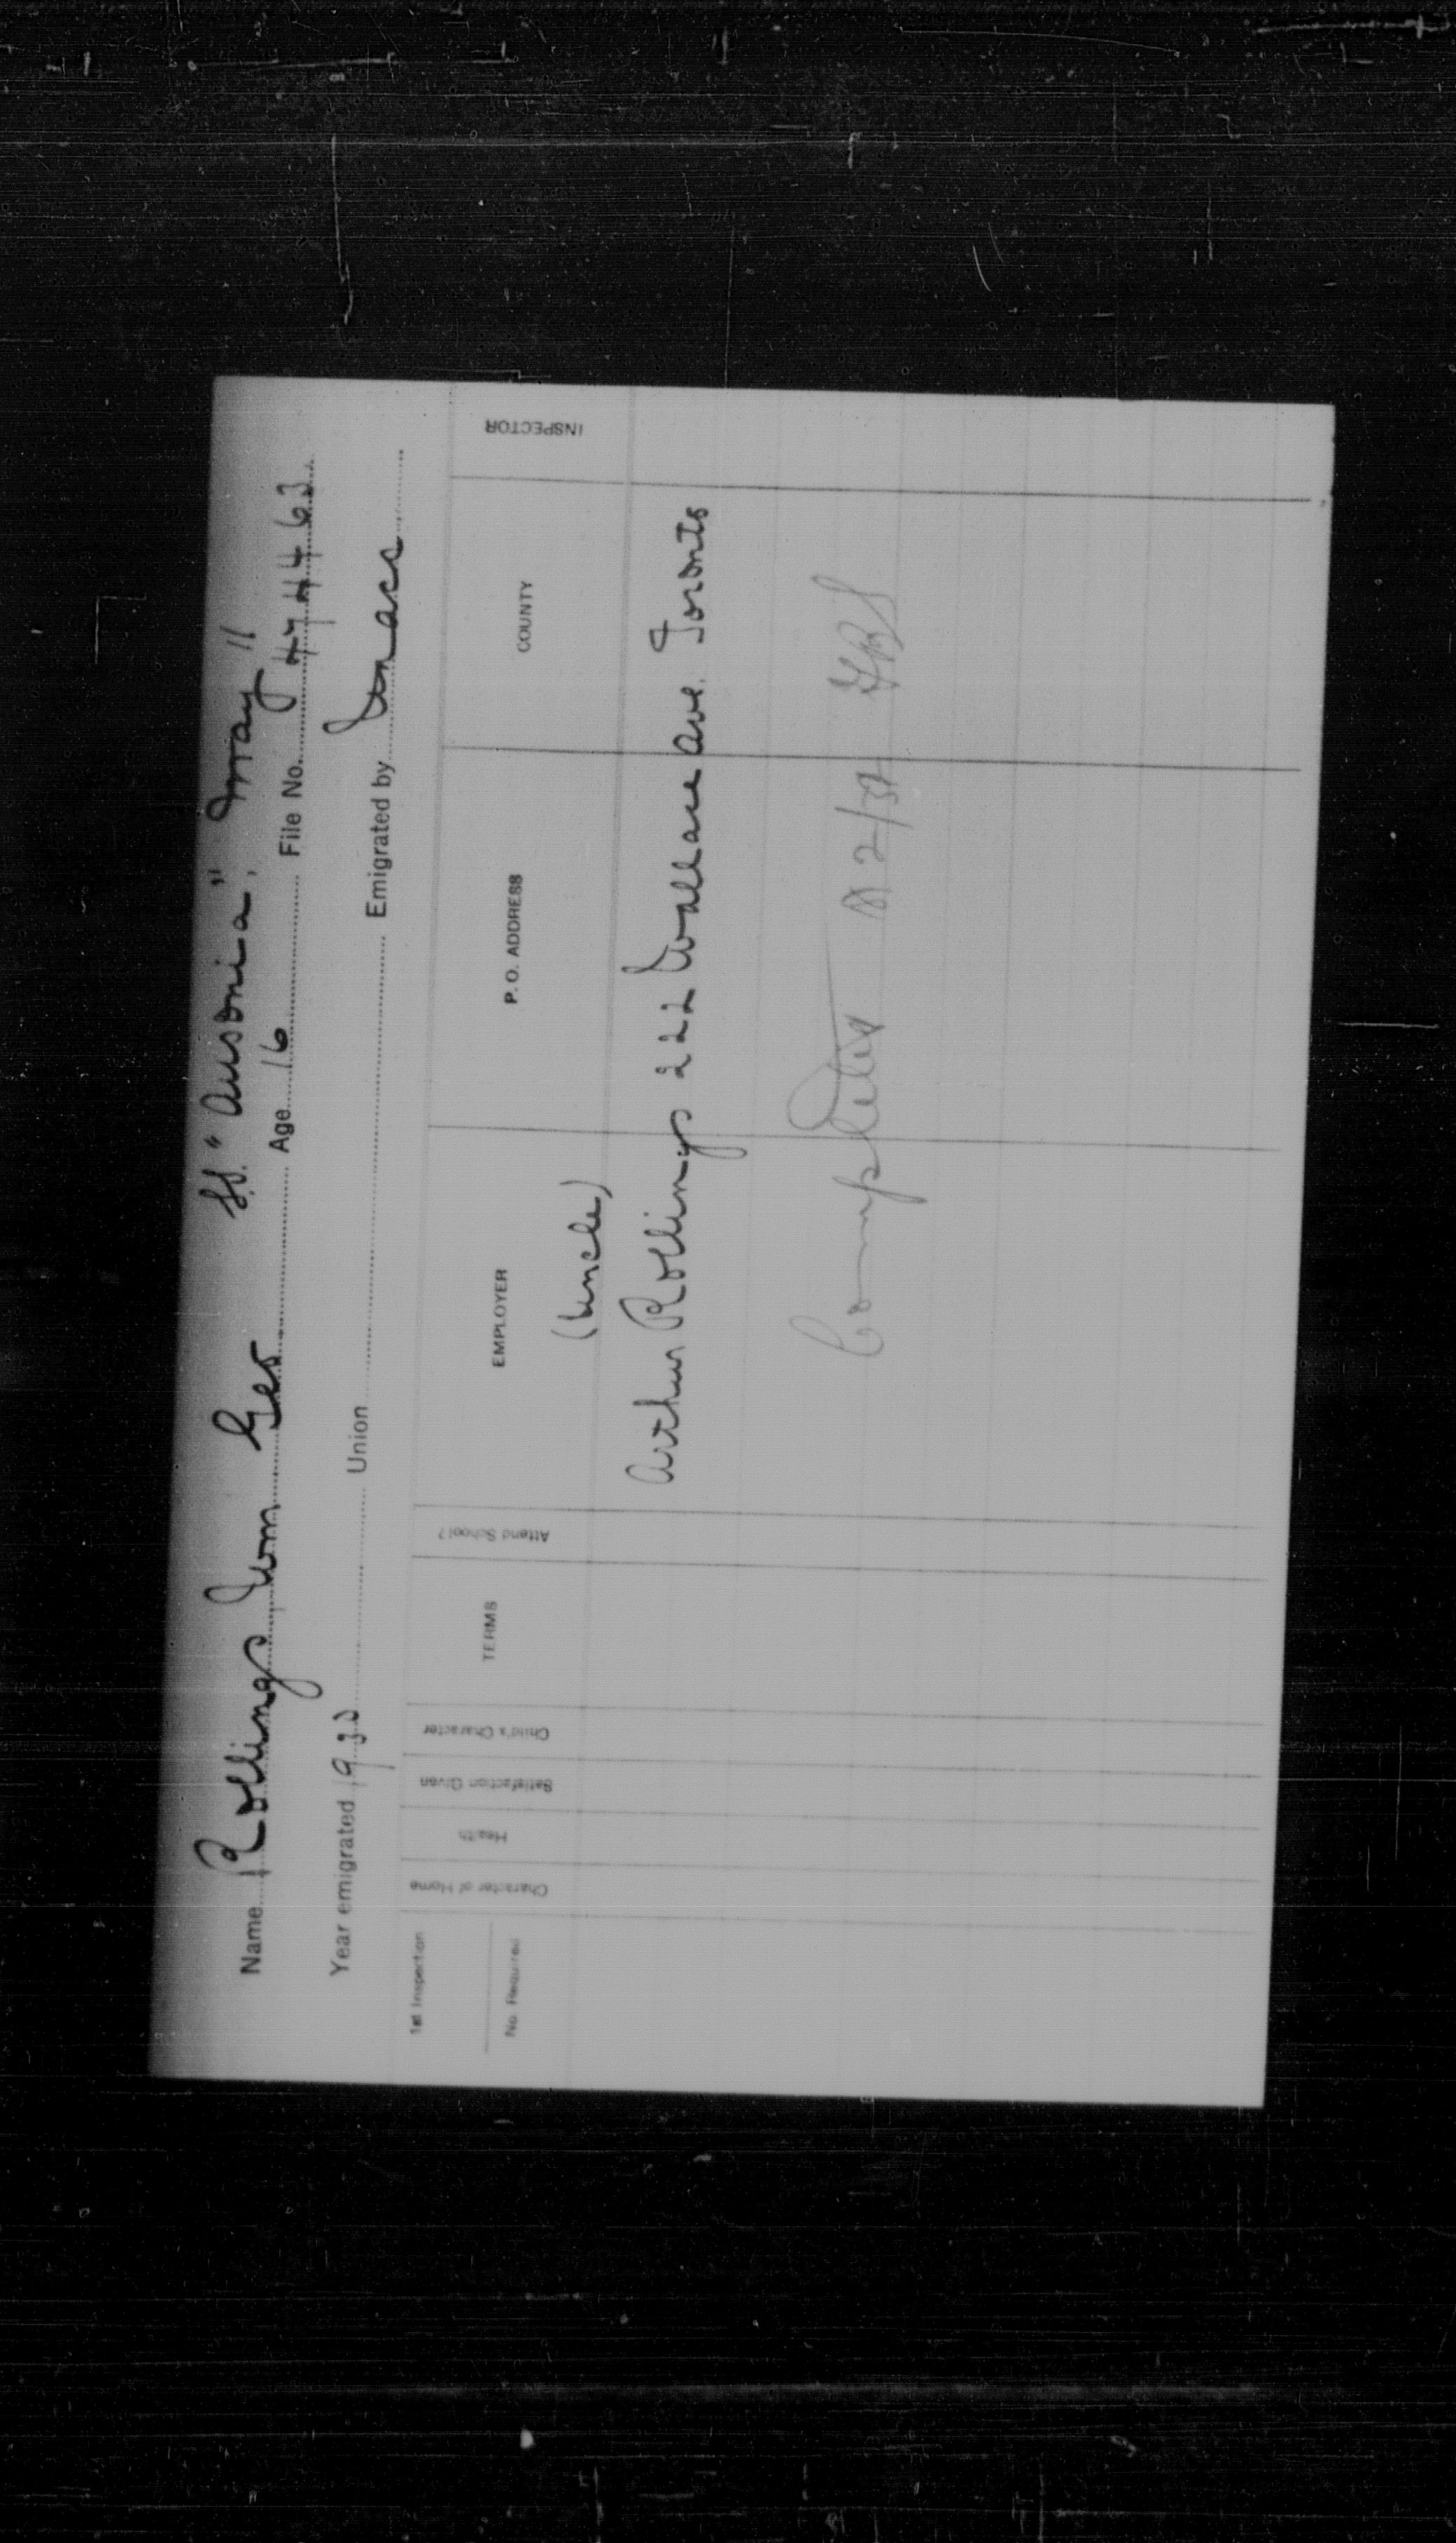 SS. "Ausonia", May 11
Name Rollings Wm Geo Age 16 File No.
Year emigrated 1930 Union Emigrated by
1st Inspection
No. Required
Character of Home
Health
Satisfaction Given
Child's Character
TERMS
Attend School?
EMPLOYER
P. O. ADDRESS
COUNTY
INSPECTOR
(Uncle)
Arthur Rollings 222 Wallace Ave. Toronto
Completed